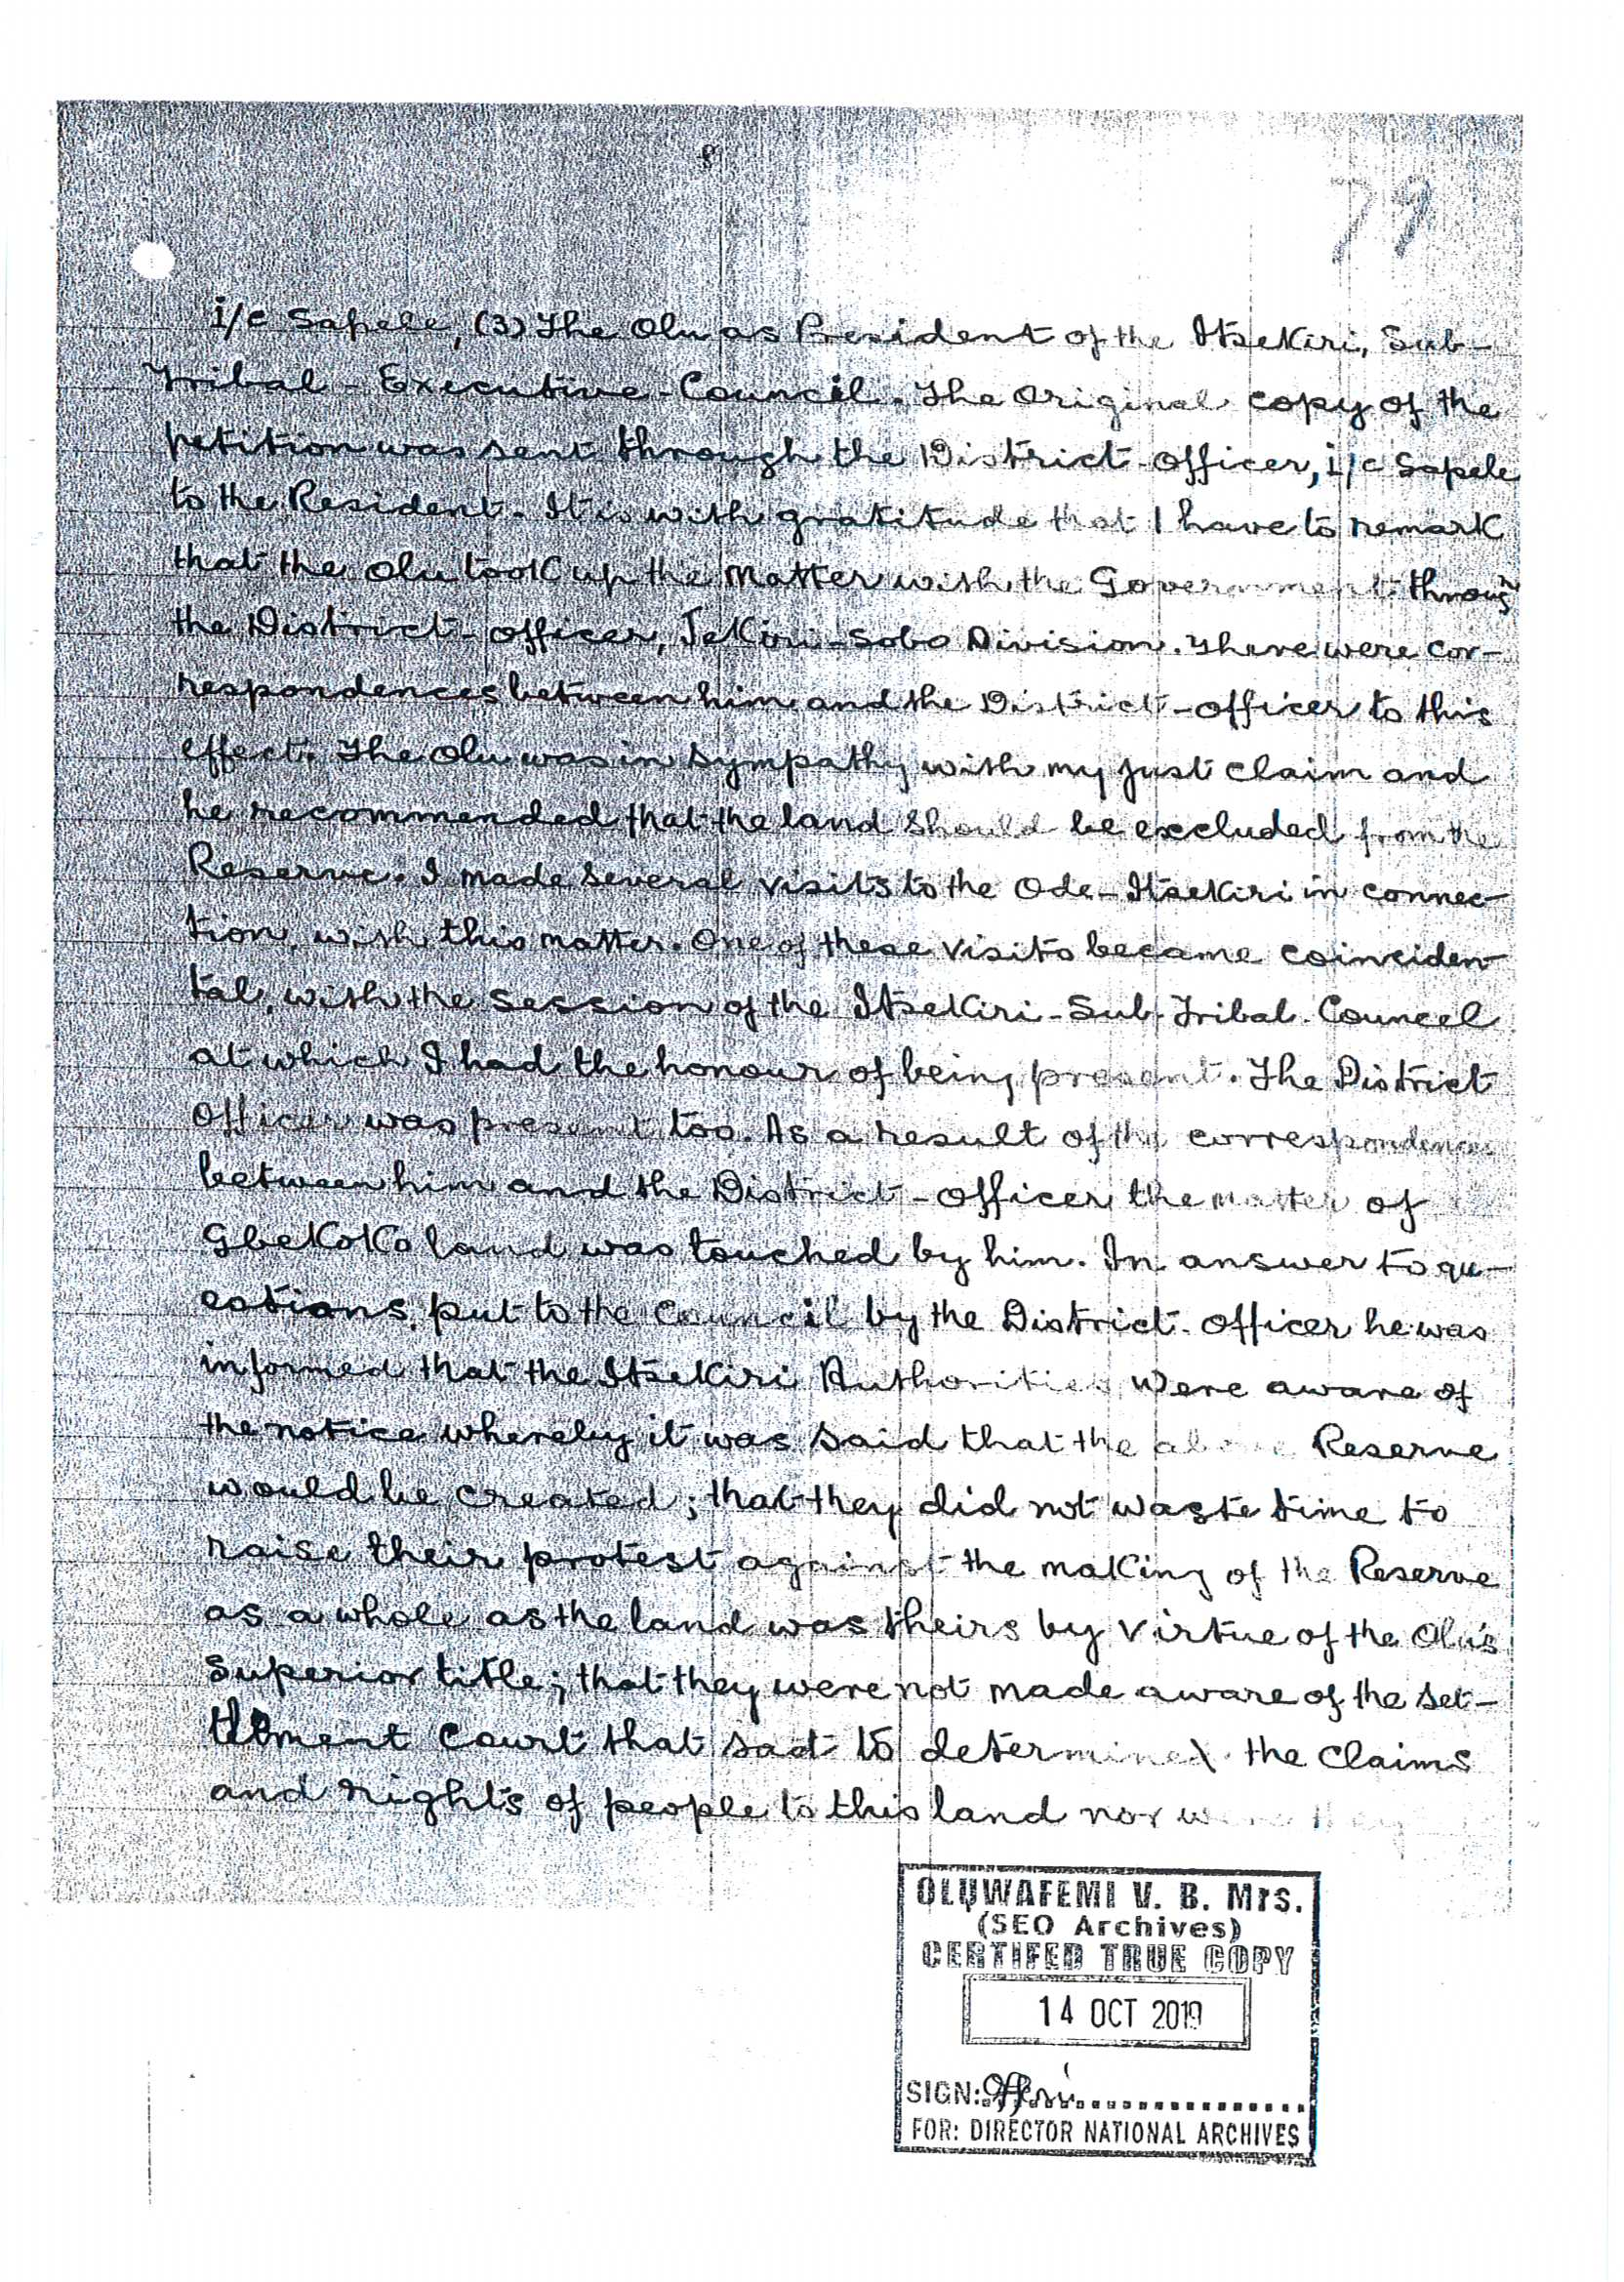 8
79
i/c Sapele, (3) The Olu as President of the Itsekiri, Sub-
Tribal - Executive - Council. The Original copy of the
petition was sent through the District-Officer, i/c Sapele
to the Resident. It is with gratitude that I have to remark
that the Olu took up the Matter with the Government throug
the District-officer, Jekiri-Sobo Division. There were cor-
respondences between him and the District-officer to this
effect. The Olu was in sympathy with my just claim and
he recommended that the land should be excluded from the
Reserve. I made several visits to the Ode-Itsekiri in connec-
tion, with this matter. One of these visits became coinciden-
tal, with the session of the Itsekiri-Sub-Tribal. Councel
at which I had the honour of being present. The District
Officer was present too. As a result of the correspondences
between him and the District-officer the matter of
Gbekoko land was touched by him. In answer to qu-
estions, put to the Council by the District-Officer he was
informed that the Itsekiri Authorities were aware of
the notice whereby it was said that the above Reserve
would be created; that they did not waste time to
raise their protest against the making of the Reserve
as a whole as the land was theirs by virtue of the Olu's
Superior title; that they were not made aware of the set-
tlement Court that sat to determined the claims
and rights of people to this land nor were they
OLUWAFEMI V. B. Mrs.
(SEO Archives)
CERTIFED TRUE COPY
14 OCT 2019
SIGN:
FOR: DIRECTOR NATIONAL ARCHIVES